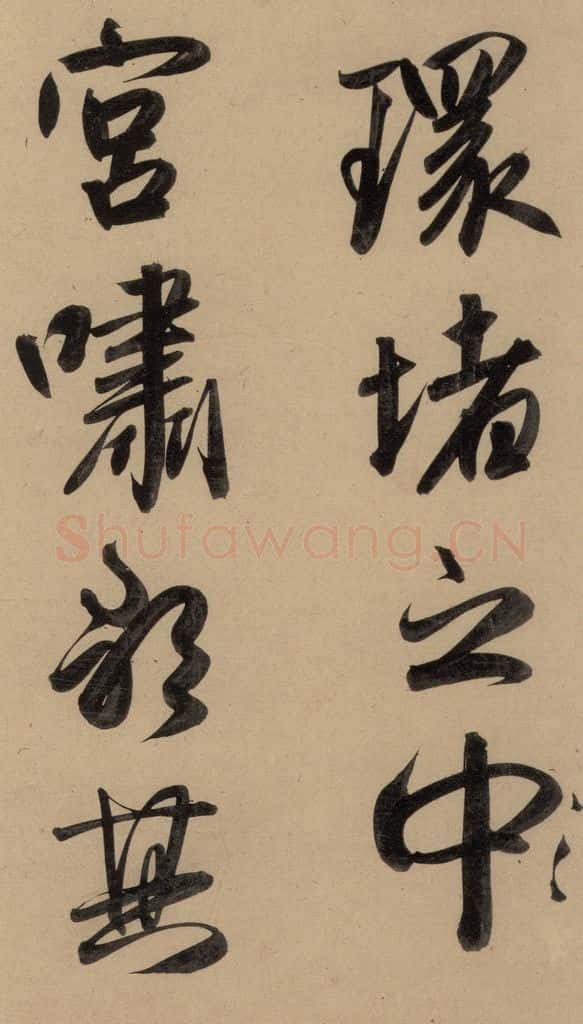 環堵之中
宮嘯歌無
Shufawang.CN